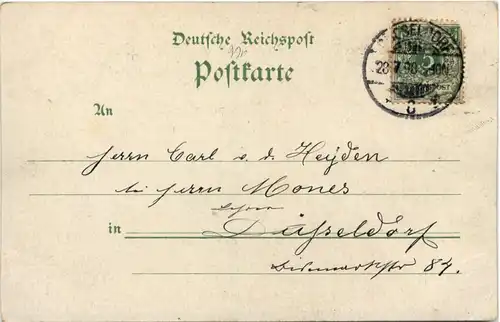 Deutsche Reichspost
Postkarte
An
Herrn Carl v. d. Heyden
bei Herrn Mones
in Düsseldorf
Bismarckstr 84.